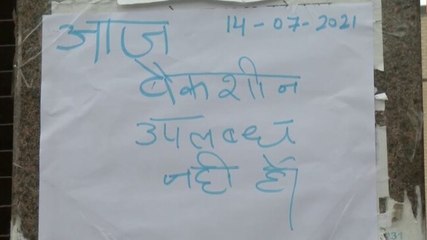 आज 14-07-2021
वेकशीन
उपलबध
नही हैं।